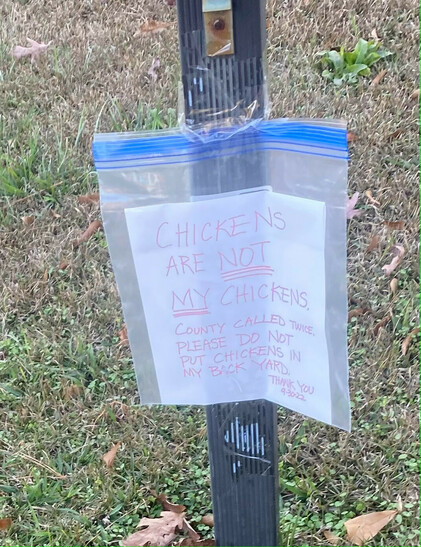 CHICKENS
ARE NOT
MY CHICKENS.
COUNTY CALLED TWICE.
PLEASE DO NOT
PUT CHICKENS IN
MY BACK YARD.
THANK YOU